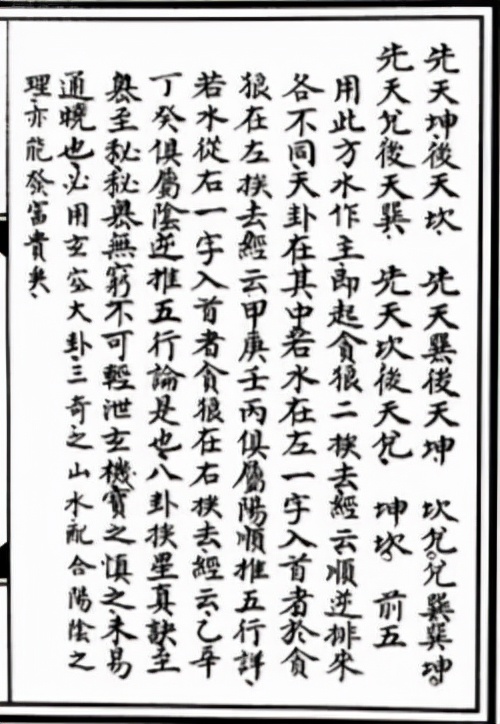 先天坤後天坎、先天巽後天坤　坎兌。兌巽巽坤。
先天兌後天巽、先天坎後天兌、坤坎。前五
用此方水作主即起貪狼二挨去經云順逆排來
各不同、天卦在其中若水在左一字入首者於貪
狼在左挨去經云甲庚壬丙俱屬陽順推五行詳、
若水從右一字入首者貪狼在右挨去、經云、乙辛
丁癸俱屬陰逆推五行論是也、八卦挨星真訣至
至秘秘無窮不可輕泄玄機寶之慎之未易
通曉也、必用玄空大卦、三奇之山水配合陽陰之
理亦能發富貴矣、